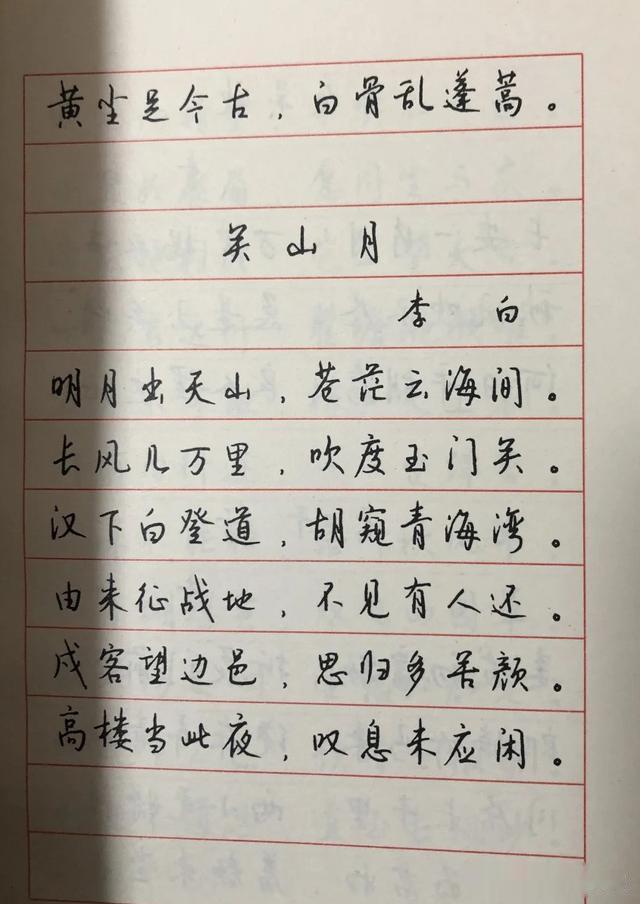 黄尘足今古，白骨乱蓬蒿。
关山月
李白
明月出天山，苍茫云海间。
长风几万里，吹度玉门关。
汉下白登道，胡窥青海湾。
由来征战地，不见有人还。
戍客望边邑，思归多苦颜。
高楼当此夜，叹息未应闲。